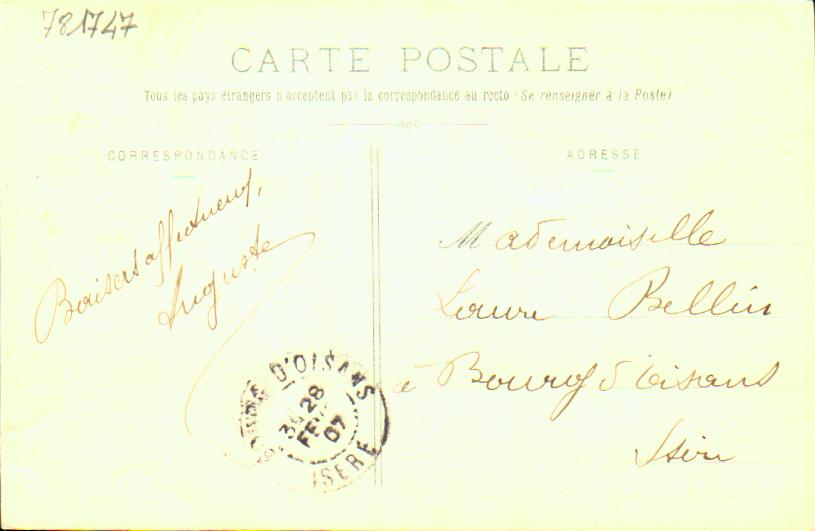 781747
CARTE POSTALE
Tous les pays étrangers n'acceptent pas la correspondance au recto (Se renseigner à la Poste)
CORRESPONDANCE
Baisers affectueux,
Auguste
ADRESSE
Mademoiselle
Laure Bellin
à Bourg d'oisans
Isère
BOURG D'OISANS
3E 28
FEVR
07
ISERE